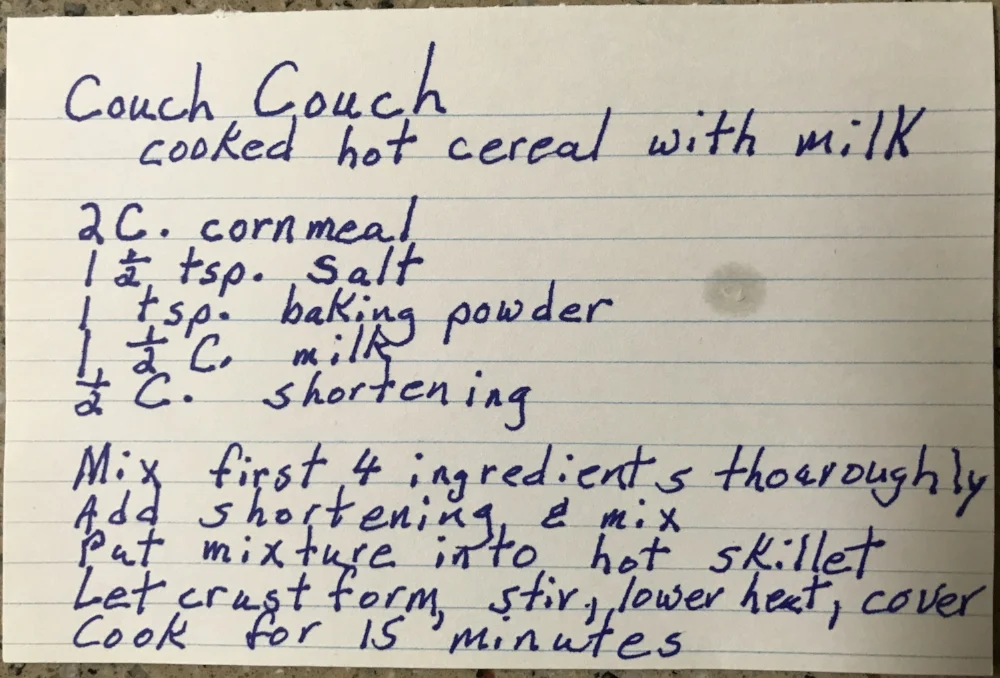 Couch Couch
cooked hot cereal with milk
2 C. cornmeal
1 1/2 tsp. salt
1 tsp. baking powder
1 1/2 C. milk
1/2 C. shortening
Mix first 4 ingredients thoaroughly
Add shortening & mix
Put mixture into hot skillet
Let crust form, stir, lower heat, cover
Cook for 15 minutes